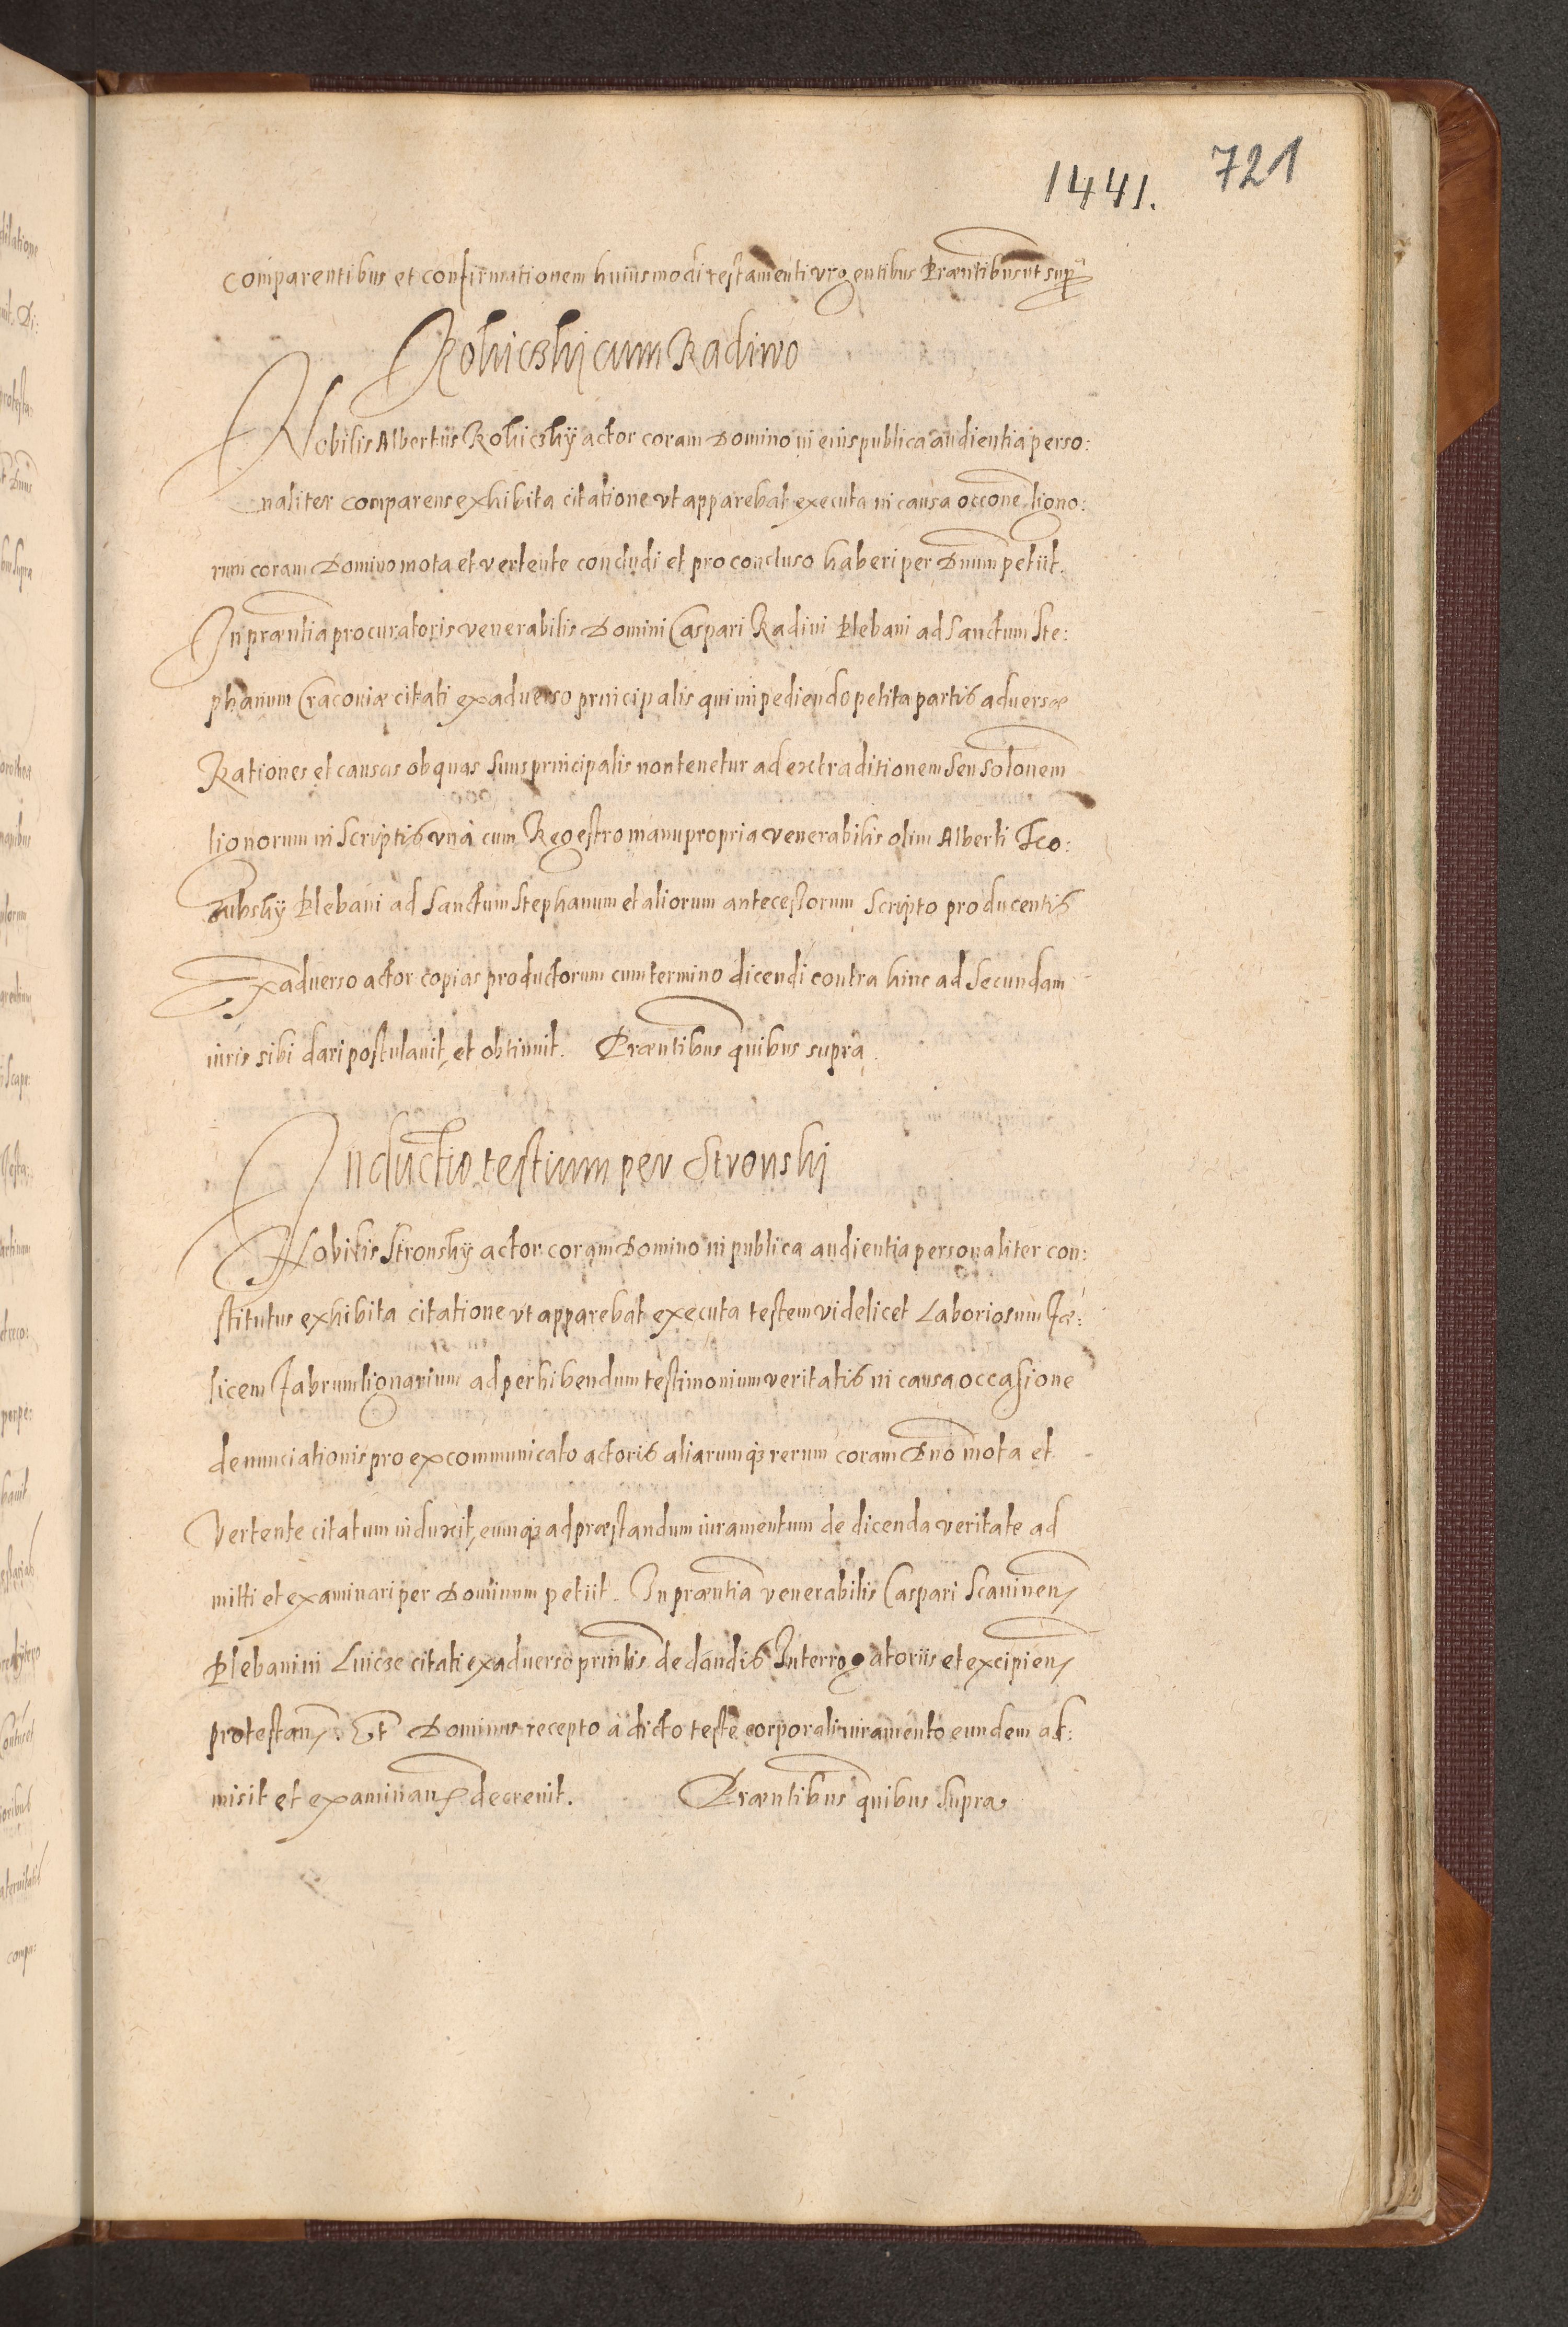 1441. 721
comparentibus et confirmationem huiusmodi testamenti vrgentibus Præntibus ut supra
Rokiczkij cum Radino
Nobilis Albertus Rokiczkÿ actor coram Domino in eius publica audientia perso:
naliter comparens exhibita citatione vt apparebat executa in causa occone ligno:
rum coram Domino mota et vertente concludi et pro concluso haberi per Dnum petiit.
In præntia procuratoris venerabilis Domini Caspari Radini Plebani ad Sanctum Ste:
phanum Cracoviæ citati ex adverso principalis qui impediendo petita partis adversæ
Rationes et causas ob quas suus principalis non tenetur ad extraditionem seu solonem
lignorum in scriptis vnà cum Regestro manu propria venerabilis olim Alberti
Plebani ad Sanctum Stephanum et aliorum antecessorum scripto producentis
Ex adverso actor copias productorum cum termino dicendi contra hinc ad secundam
iuris sibi dari postulauit, et obtinuit. Præntibus quibus supra.
Inductio testium per Stronskij
Nobilis Stronskÿ actor coram Domino in publica audientia personaliter con:
stitutus exhibita citatione vt apparebat executa testem videlicet Laboriosum Fæ:
licem Fabrum lignarium ad perhibendum testimonium veritatis in causa occasione
denunciationis pro excommunicato actoris aliarumq3 rerum coram Dno mota et
Vertente citatum induxit, eumq3 ad præstandum iuramentum de dicenda veritate ad
mitti et examinari per Dominum petiit. In præntia venerabilis Caspari Scaninen
Plebani in Luicze citati ex adverso prinlis de dandis Interrogatoriis et excipien
protestan. Et Dominus recepto à dicto teste corporali iuramento eundem ad:
misit et examinan decrevit. Præntibus quibus supra